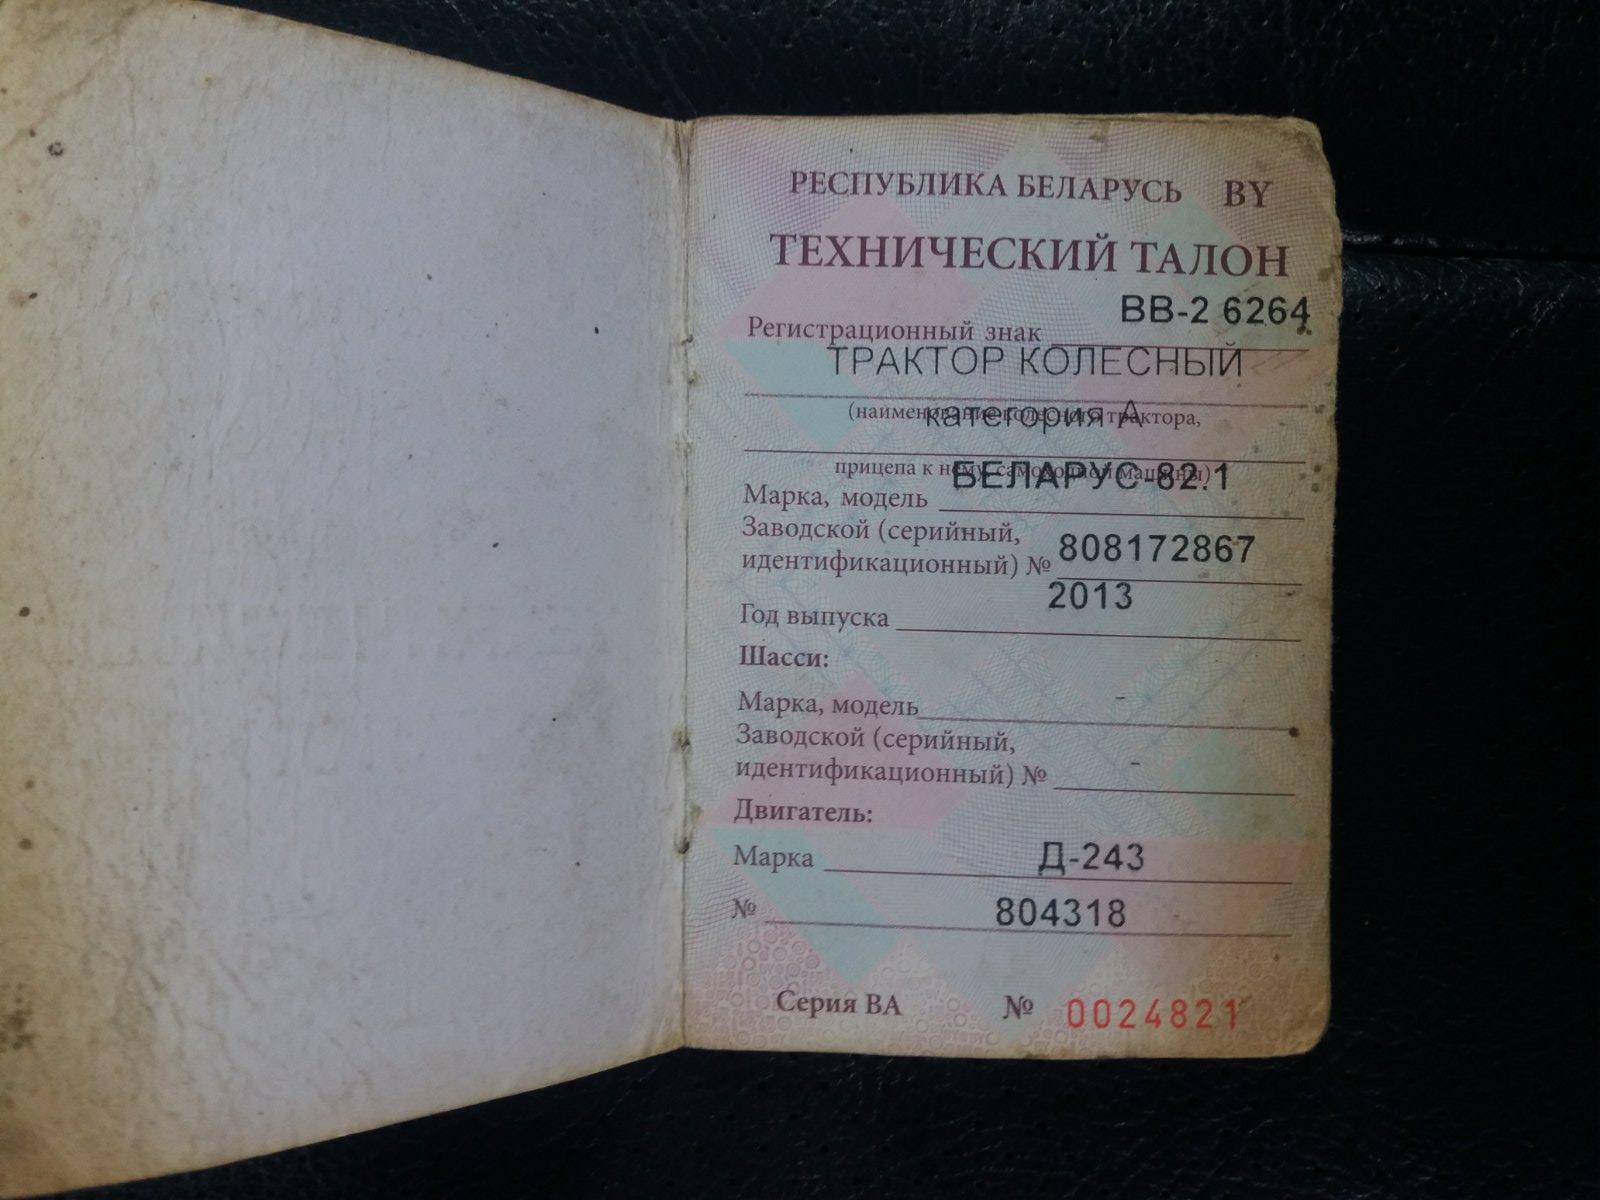 РЕСПУБЛИКА БЕЛАРУСЬ BY
ТЕХНИЧЕСКИЙ ТАЛОН
Регистрационный знак ВВ-2 6264
ТРАКТОР КОЛЕСНЫЙ
(наименование колесного трактора,
категория А
прицепа к нему, самоходной машины)
Марка, модель БЕЛАРУС-82.1
Заводской (серийный,
идентификационный) № 808172867
Год выпуска 2013
Шасси:
Марка, модель -
Заводской (серийный,
идентификационный) № -
Двигатель:
Марка Д-243
№ 804318
Серия ВА № 0024821